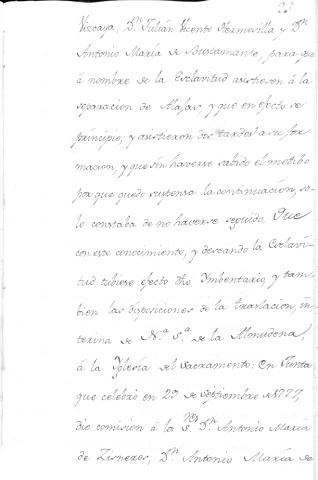 23
Viscaya, Dn. Julián Vicente Hermosilla y Dn.
Antonio María de Bustamante, para que
á nombre de la Esclavitud asistiesen á la
separacion de Alajas, y que en efecto se
principio, y asistieron dos tardes a su for
macion, y que sin haverse sabido el motibo
por que quedo suspensa la continuacion, so-
lo constaba de no haverse seguido. Que
con este conocimiento, y deseando la Esclavi-
tud tubiese efecto dho Imbentario, y tam-
bien las disposiciones de la traslacion, in-
terina de N.a S.a de la Almudena,
á la Yglesia del Sacramento: en Junta
que celebró en 29 de septiembre de 1777,
dio comision á los S.res Dn. Antonio María
de Zisneros, Dn. Antonio María de